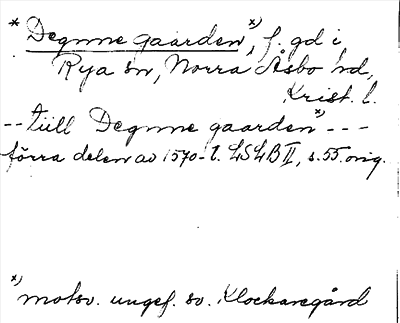 * Degnne gaarden*), f. gd i
Rya sn, Norra Åsbo hd,
Krist. l.
-- tiill Degnne gaarden*) ---
förra delen av 1570-t. LSLB II, s. 55. orig.
*) motsv. ungef. sv. Klockaregård